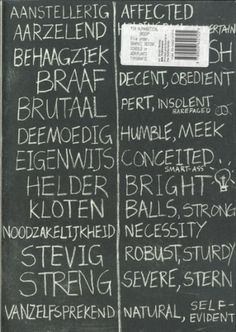 AANSTELLERIG AFFECTED
AARZELEND
BEHAAGZIEK
BRAAF DECENT, OBEDIENT
BRUTAAL PERT, INSOLENT
BAREFACED
DEEMOEDIG HUMBLE, MEEK
EIGENWIJS CONCEITED
SMART-ASS
HELDER BRIGHT
KLOTEN BALLS, STRONG
NOODZAKELIJKHEID NECESSITY
STEVIG ROBUST, STURDY
STRENG SEVERE, STERN
VANZELFSPREKEND NATURAL, SELF-
EVIDENT